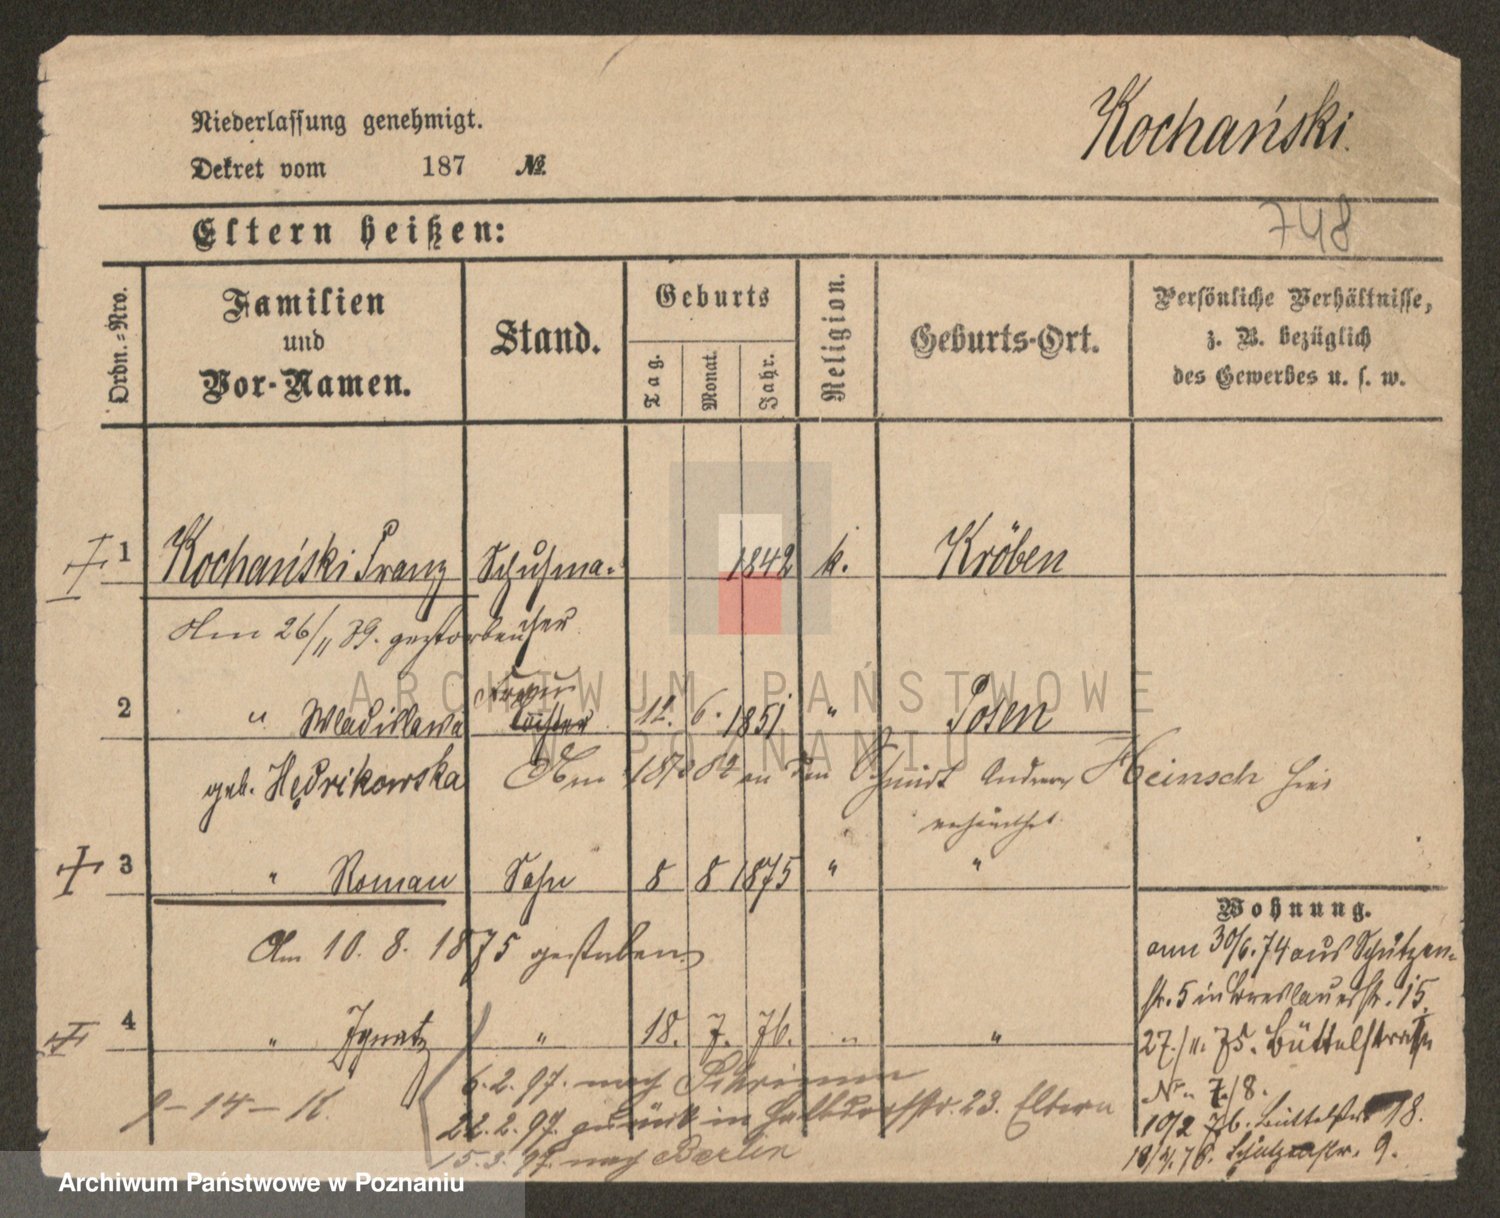 Niederlassung genehmigt.
Kochański.
Dekret vom 187 №
Eltern heißen:
748
Ordn.-Nro.
Familien
und
Vor-Namen.
Stand.
Geburts
Tag.
Monat.
Jahr.
Religion.
Geburts-Ort.
Persönliche Verhältnisse,
z. B. bezüglich
des Gewerbes u. s. w.
1 Kochański Franz Schuhma- 1842 k. Kröben
Am 26/11 79. gestorben cher
2 " Wladislawa Frau 12. 6. 1851 " Posen
geb. Hedrikowska Am 82 an den Schmidt Andreas Heinsch hier
verheirathet
3 " Roman Sohn 8 8 1875 " "
Am 10. 8. 1875 gestorben
4 " Ignatz " 18. 7. 76. " "
6. 2. 97. nach Schrimm
22. 2. 97. zurück in Halbdorfstr. 23. Eltern
15. 3. 97. nach Berlin
9-14-11.
Wohnung.
am 30/6. 74 aus Schützen-
str. 5 in Breslauerstr. 15.
27./11. 75. Büttelstraße
Nr. 7/8.
10/2 76. Büttelstr. 18.
18/4. 76. Schützenstr. 9.
ARCHIWUM PAŃSTWOWE
W POZNANIU
Archiwum Państwowe w Poznaniu